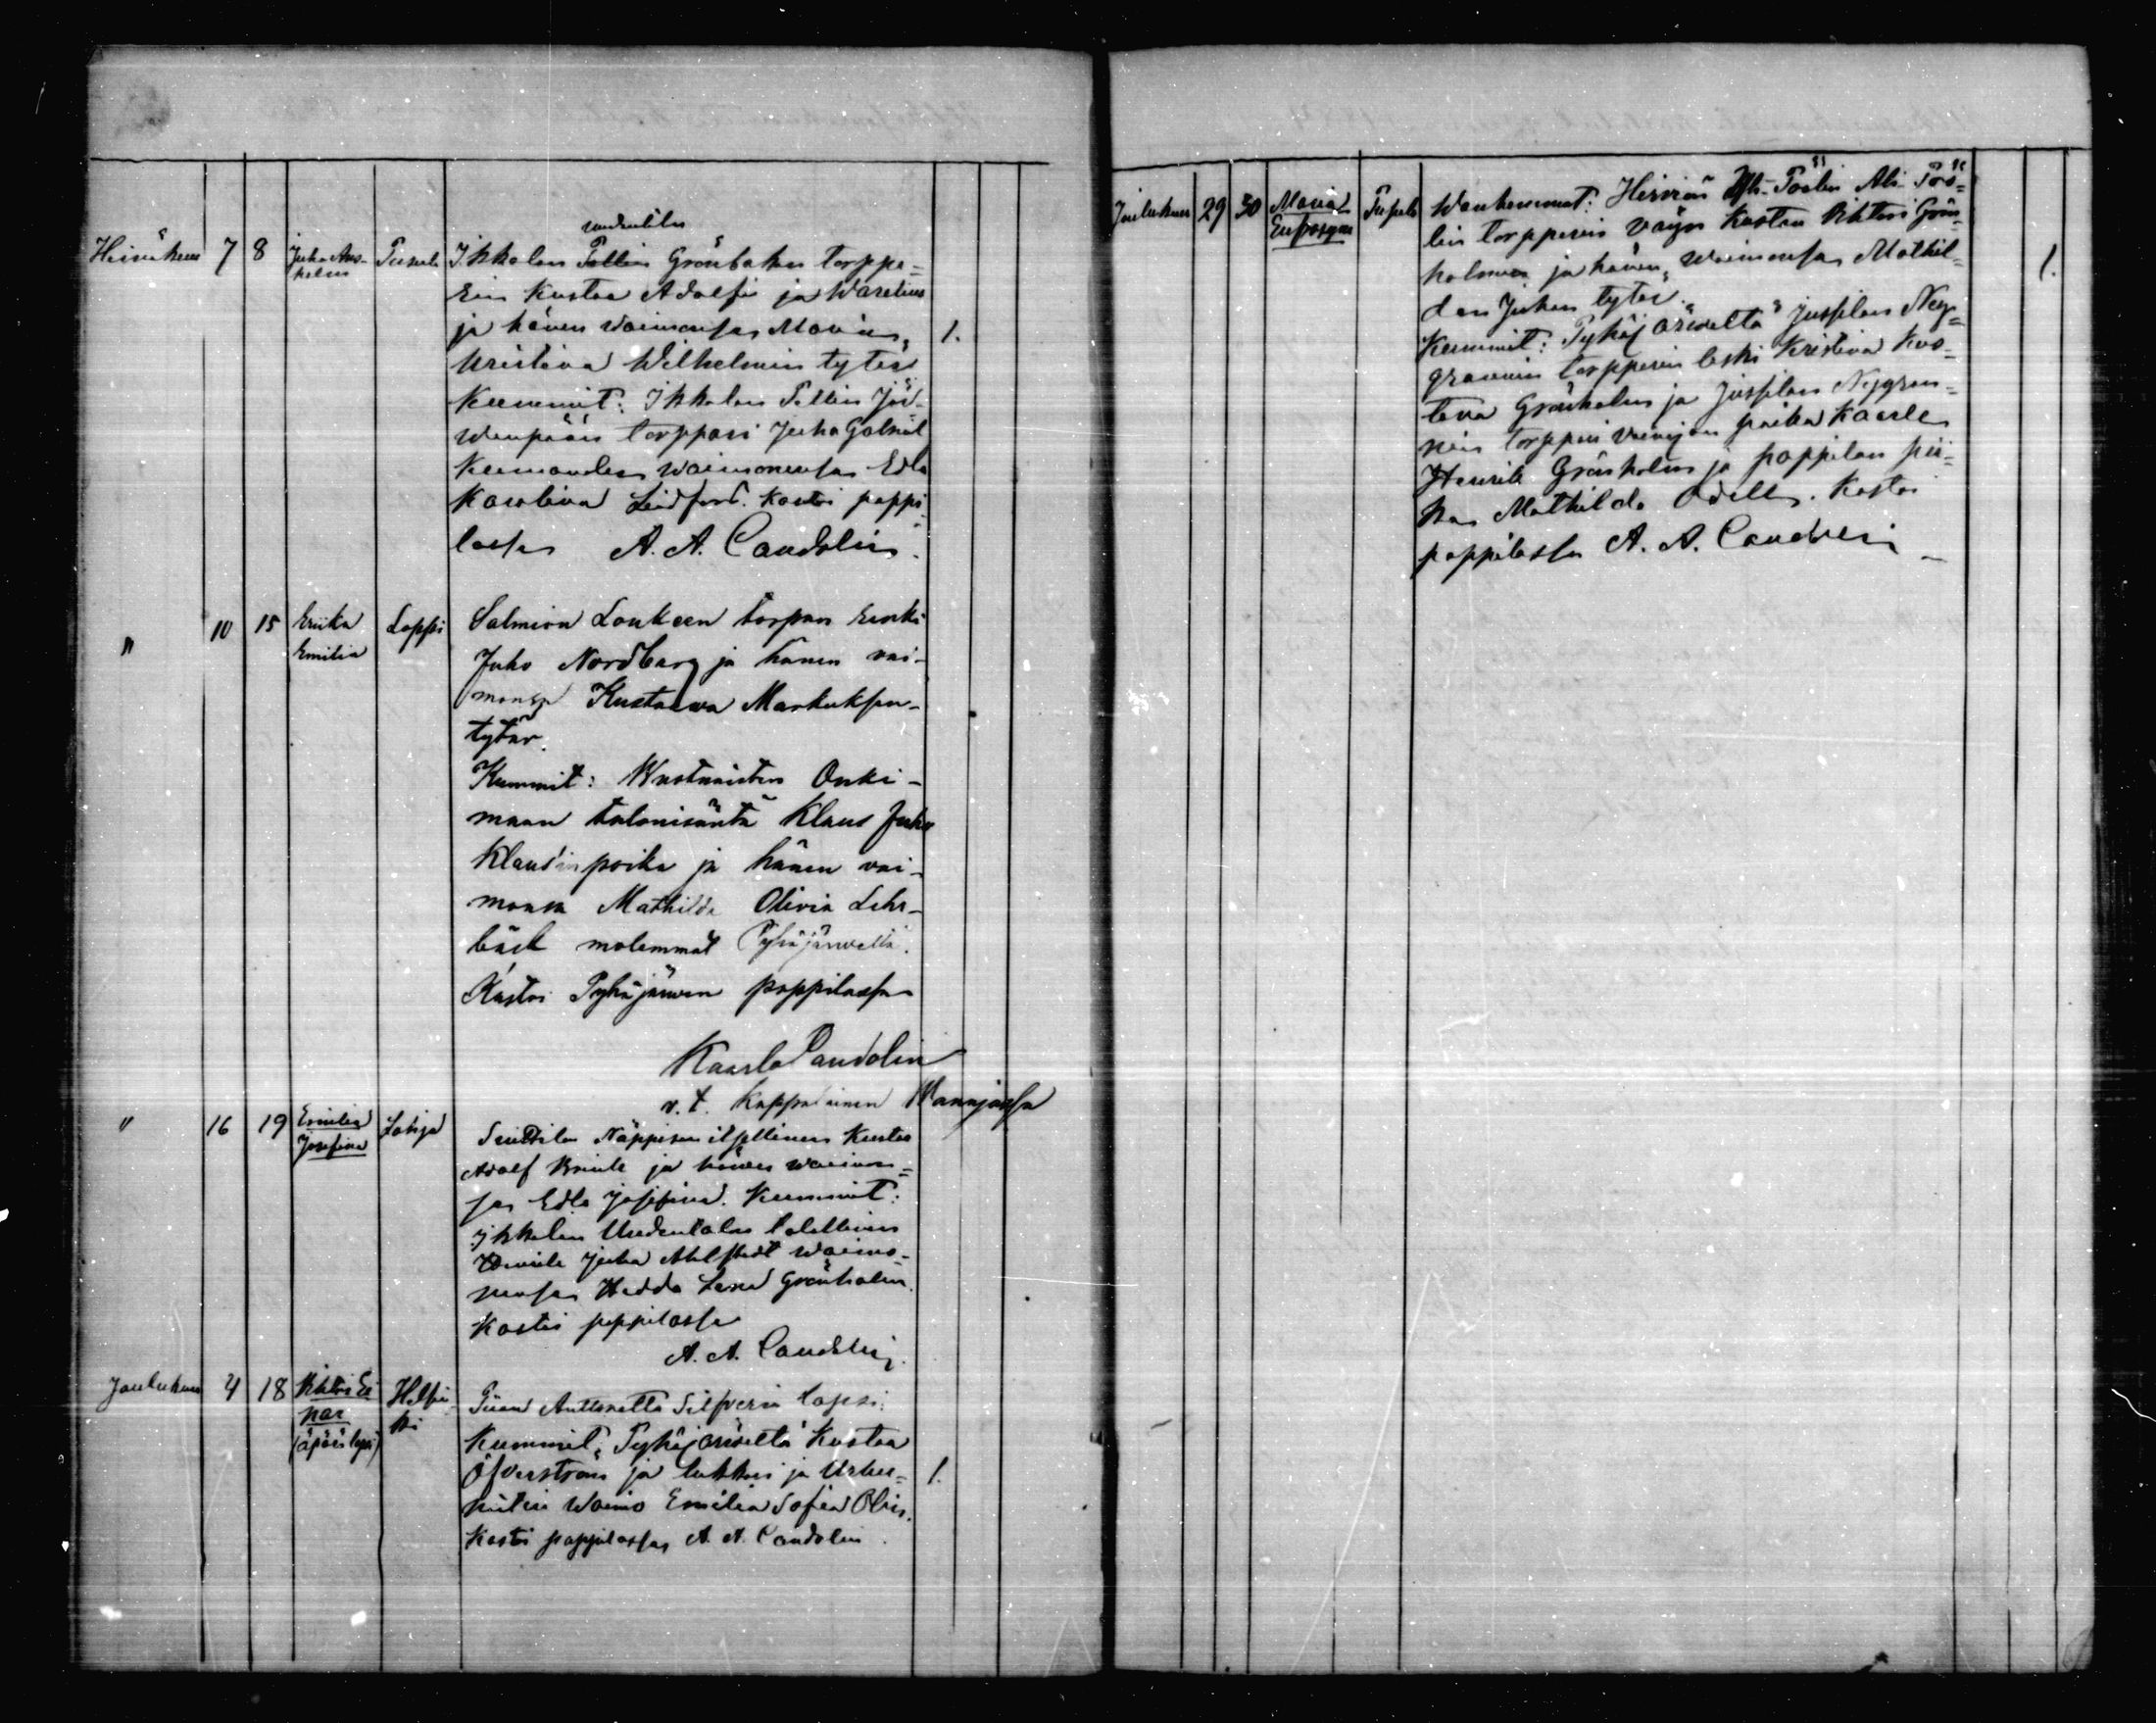 Heinäkuu 7 8 Juho Ans-
helm Pusula
uudentalon
Ikkalan Pellin Grönbakan torppa=
rin Kustaa Adolfin ja Warelius
ja hänen waimonsa Maria 1.
Kristina Wilhelmin tytär
Kummit: Ikkalan Pellin Jär-
wenpään torppari Juha Gabriel
waimonensa Edla
Karolina Lindfors. Kastoi pappi-
lassa A. A. Candolin.
" 10 15 Eriika
Emilia Loppi
Salmion Loukeen torpan
Juho Nordberg ja hänen vai-
monsa Kustaava Markuksen-
tytär.
Kummit: Wustnaisten Onki-
maan talonisäntä Klaus Juho
Klaudinpoika ja hänen vai-
monsa Mathilda Olivia Lehr-
bäck molemmat Pyhäjärveltä.
Kastoi Pyhäjärven pappilassa
Kaarlo Candolin
v. t. Kappalainen Wanajassa
" 16 19 Emilia
Josefina Lohja
Näppisen itsellinen Kustaa
Adolf ja hänen waimon=
sa Edla Josefina. Kummit:
Ikkalan Uudentalon talollinen
Juha Ahlstedt waimo-
nensa Hedda Lena Grönholm.
Kastoi pappilassa
A. A. Candolin.
Joulukuu 4 18 Viktor Ei
nar
(äpärä lapsi) Helsin-
ki
Piian Antonetta Silfverin lapsi.
Kummit: Pyhäjärweltä Kustaa
Öfverström ja lukkari ja Urku= 1.
niekan Waimo Emilia Sofia
Kastoi pappilassa A. A. Candolin.
Joulukuu 29 30 Maria
Eufrosyne Pusula
Wanhemmat: Hirviän Yli-Pöölin Ali-Pöö=
lin torpparin väyn Kustaa Viktori Grön
holmin ja hänen waimonsa Mathil= 1.
dan Juhan tytär.
Kummit: Pyhäjärweltä Jussilan Ny=
grannin torpparin leski Kristina Kus-
tava Grönholm ja Jussilan Nygran-
nin torppari vainajan poika Kaarle
Henrik Grönholm ja pappilan pii=
ka Mathilda Odell. Kastoi
pappilassa A. A. Candolin